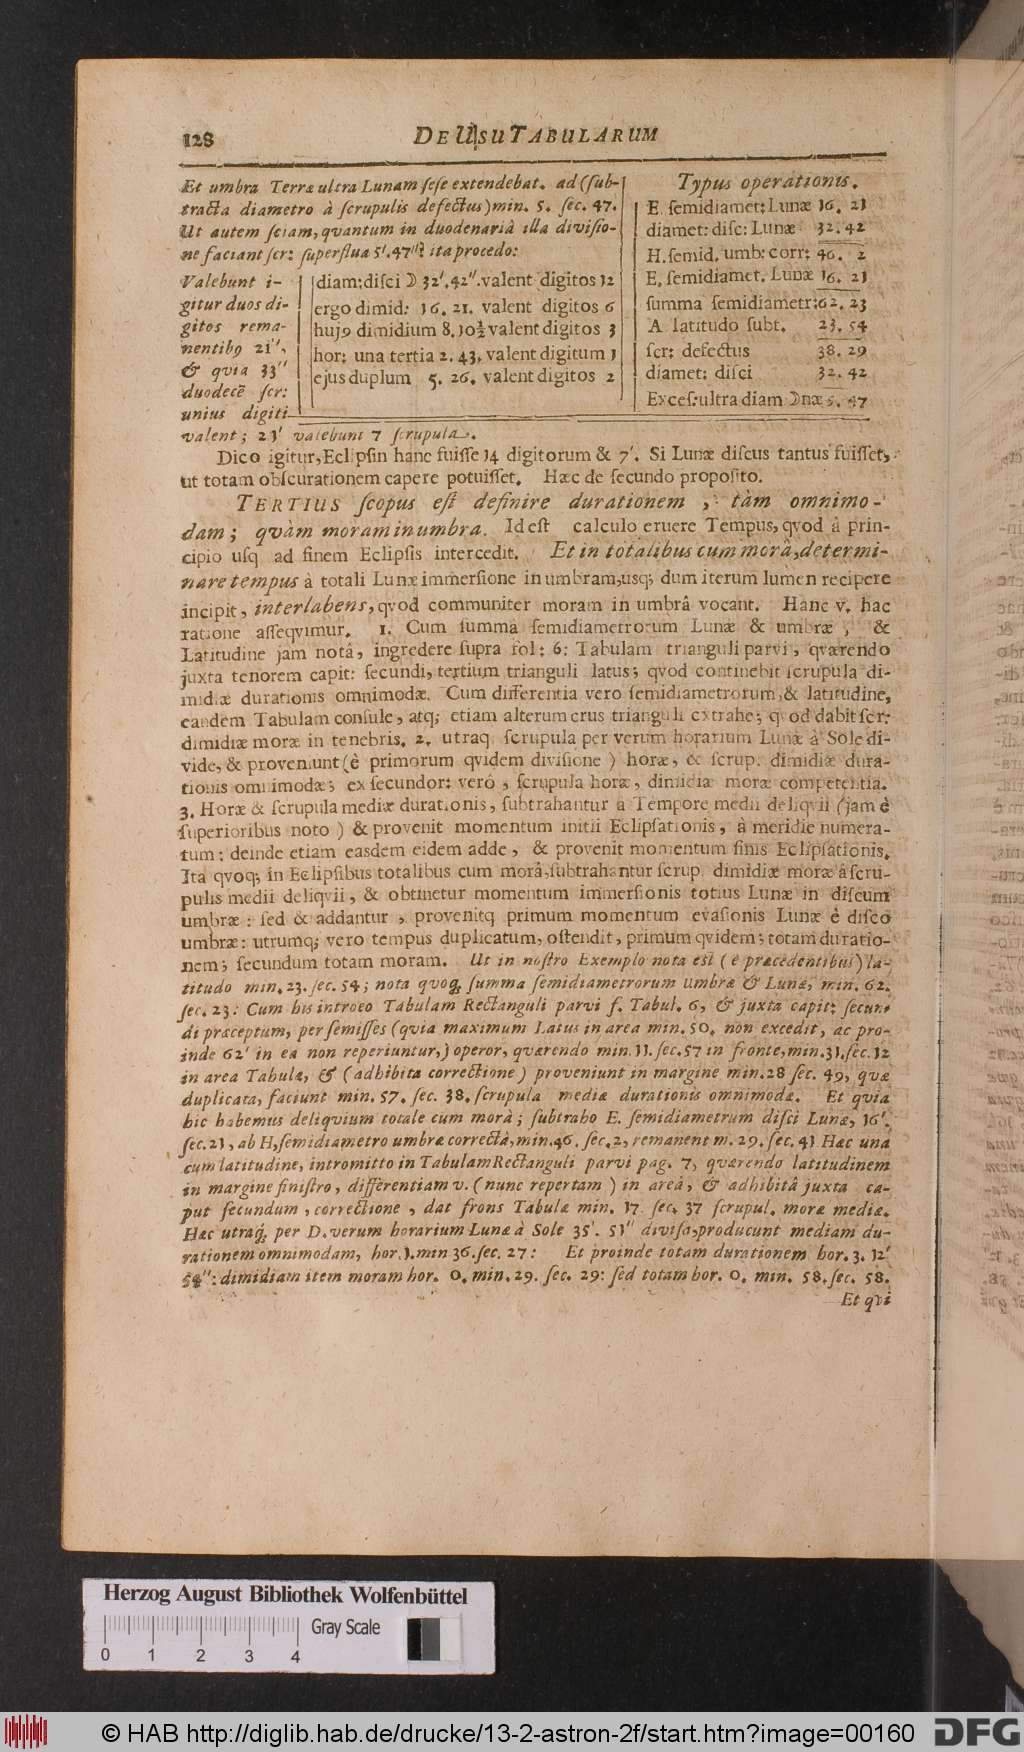 128
DE USU TABULARUM
Et umbra Terræ ultra Lunam ſeſe extendebat. ad (ſub-
tracta diametro à ſcrupulis defectus) min. 5. ſec. 47.
Ut autem ſciam, quantum in duodenariâ illa diviſio-
ne faciant ſcr: ſuperflua 5'. 47"? ita procedo:
Valebunt i-
gitur duos di-
gitos rema-
nentibꝰ 21",
& qvia 33"
duodecē ſcr:
unius digiti
valent; 23' valebunt 7 ſcrupula.
diam: diſci ☽ 32'. 42". valent digitos 12
ergo dimid: 16. 21. valent digitos 6
hujꝰ dimidium 8. 10½ valent digitos 3
hor: una tertia 2. 43. valent digitum 1
ejus duplum 5. 26. valent digitos 2
Typus operationis.
E. ſemidiamet: Lunæ 16. 21
diamet: diſc: Lunæ 32. 42
H. ſemid. umb: corr: 46. 2
E. ſemidiamet. Lunæ 16. 21
ſumma ſemidiametr: 62. 23
A latitudo ſubt. 23. 54
ſcr: defectus 38. 29
diamet: diſci 32. 42
Exceſ: ultra diam ☽næ 5. 47
Dico igitur, Eclipſin hanc fuiſſe 14 digitorum & 7'. Si Lunæ diſcus tantus fuiſſet,
ut totam obſcurationem capere potuiſſet. Hæc de ſecundo propoſito.
TERTIUS ſcopus eſt definire durationem, tàm omnimo-
dam; quàm moram in umbra. Id eſt calculo eruere Tempus, qvod à prin-
cipio uſq ad finem Eclipſis intercedit. Et in totalibus cum morâ, determi-
nare tempus à totali Lunæ immerſione in umbram, usq; dum iterum lumen recipere
incipit, interlabens, qvod communiter moram in umbrâ vocant. Hanc v. hac
ratione aſſeqvimur. 1. Cum ſumma ſemidiametrorum Lunæ & umbræ, &
Latitudine jam notâ, ingredere ſupra fol: 6: Tabulam trianguli parvi, qværendo
juxta tenorem capit: ſecundi, tertium trianguli latus; qvod continebit ſcrupula di-
midiæ durationis omnimodæ. Cum differentia vero ſemidiametrorum, & latitudine,
eandem Tabulam conſule, atq; etiam alterum crus trianguli extrahe; qvod dabit ſcr:
dimidiæ moræ in tenebris. 2. utraq ſcrupula per verum horarium Lunæ à Sole di-
vide, & proveniunt (è primorum qvidem diviſione) horæ, & ſcrup. dimidiæ dura-
tionis omnimodæ; ex ſecundor: verò, ſcrupula horæ, dimidiæ moræ competentia.
3. Horæ & ſcrupula mediæ durationis, ſubtrahantur à Tempore medii deliqvii (jam è
ſuperioribus noto) & provenit momentum initii Eclipſationis, à meridie numera-
tum: deinde etiam easdem eidem adde, & provenit momentum finis Eclipſationis.
Ita qvoq; in Eclipſibus totalibus cum morâ, ſubtrahantur ſcrup. dimidiæ moræ â ſcru-
pulis medii deliqvii, & obtinetur momentum immerſionis totius Lunæ in diſcum
umbræ: ſed & addantur, provenitq primum momentum evaſionis Lunæ è diſco
umbræ: utrumq; vero tempus duplicatum, oſtendit, primum qvidem; totam duratio-
nem; ſecundum totam moram. Ut in noſtro Exemplo nota eſt (è præcedentibus) la-
titudo min. 23. ſec. 54; nota quoq, ſumma ſemidiametrorum umbræ & Lunæ, min. 62.
ſec. 23: Cum his introeo Tabulam Rectanguli parvi f. Tabul. 6, & juxta capit: ſecun-
di præceptum, per ſemiſſes (quia maximum Latus in area min. 50. non excedit, ac pro-
inde 62' in ea non reperiuntur,) operor, quærendo min. 11. ſec. 57 in fronte, min. 31. ſec. 12
in area Tabulæ, & (adhibita correctione) proveniunt in margine min. 28 ſec. 49, quæ
duplicata, faciunt min. 57. ſec. 38. ſcrupula mediæ durationis omnimodæ. Et quia
hic habemus deliquium totale cum morà; ſubtraho E. ſemidiametrum diſci Lunæ, 16'.
ſec. 21, ab H, ſemidiametro umbræ correctâ, min. 46. ſec. 2, remanent m. 29. ſec. 41 Hac una
cum latitudine, intromitto in Tabulam Rectanguli parvi pag. 7, quærendo latitudinem
in margine ſiniſtro, differentiam v. (nunc repertam) in areâ, & adhibitâ juxta ca-
put ſecundum, correctione, dat frons Tabulæ min. 17 ſec. 37 ſcrupul. moræ mediæ.
Hæc utraq; per D. verum horarium Lunæ à Sole 35'. 51" diviſa, producunt mediam du-
rationem omnimodam, hor. 1. min 36. ſec. 27: Et proinde totam durationem hor. 3. 12'
54": dimidiam item moram hor. 0. min. 29. ſec. 29: ſed totam hor. 0. min. 58. ſec. 58.
Et qvi
Herzog August Bibliothek Wolfenbüttel
Gray Scale
0 1 2 3 4
© HAB http://diglib.hab.de/drucke/13-2-astron-2f/start.htm?image=00160
DFG